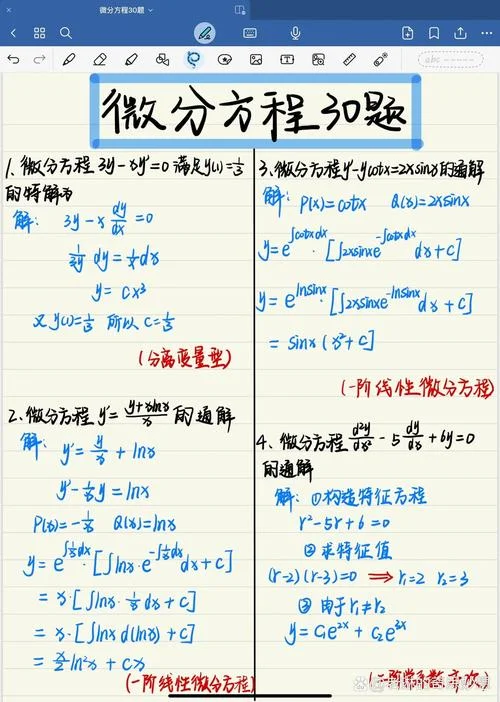 微分方程30题
abc
微分方程30题
1、微分方程 3y-xy'=0 满足y(1)=1/3
的特解为
解: 3y-x dy/dx=0
1/3y dy=1/x dx
y=Cx³
又y(1)=1/3 所以C=1/3
(分离变量型)
2、微分方程 y'=(y+xlnx)/x 的通解
解: y'=y/x+lnx
y'-1/x y=lnx
P(x)=-1/x Q(x)=lnx
y=e^∫1/x dx·[∫lnx·e^-∫1/x dx dx+C]
=x·[∫lnx·1/x dx+C]
=x·[∫lnx d(lnx)+C]
=x/2 ln²x+Cx
(一阶线性微分方程)
3、微分方程y'-ycotx=2xsinx的通解
解: P(x)=cotx Q(x)=2xsinx
y=e^∫cotxdx·[∫2xsinxe^-∫cotxdx dx+C]
y=e^lnsinx·[∫2xsinxe^-lnsinx dx+C]
=sinx(x²+C)
(一阶线性微分方程)
4、微分方程 d²y/dx²-5 dy/dx+6y=0
的通解
解: ①构造特征方程
r²-5r+6=0
②求特征值
(r-2)(r-3)=0 ⟹ r₁=2 r₂=3
③由于r₁≠r₂
y=C₁e^2x+C₂e^3x